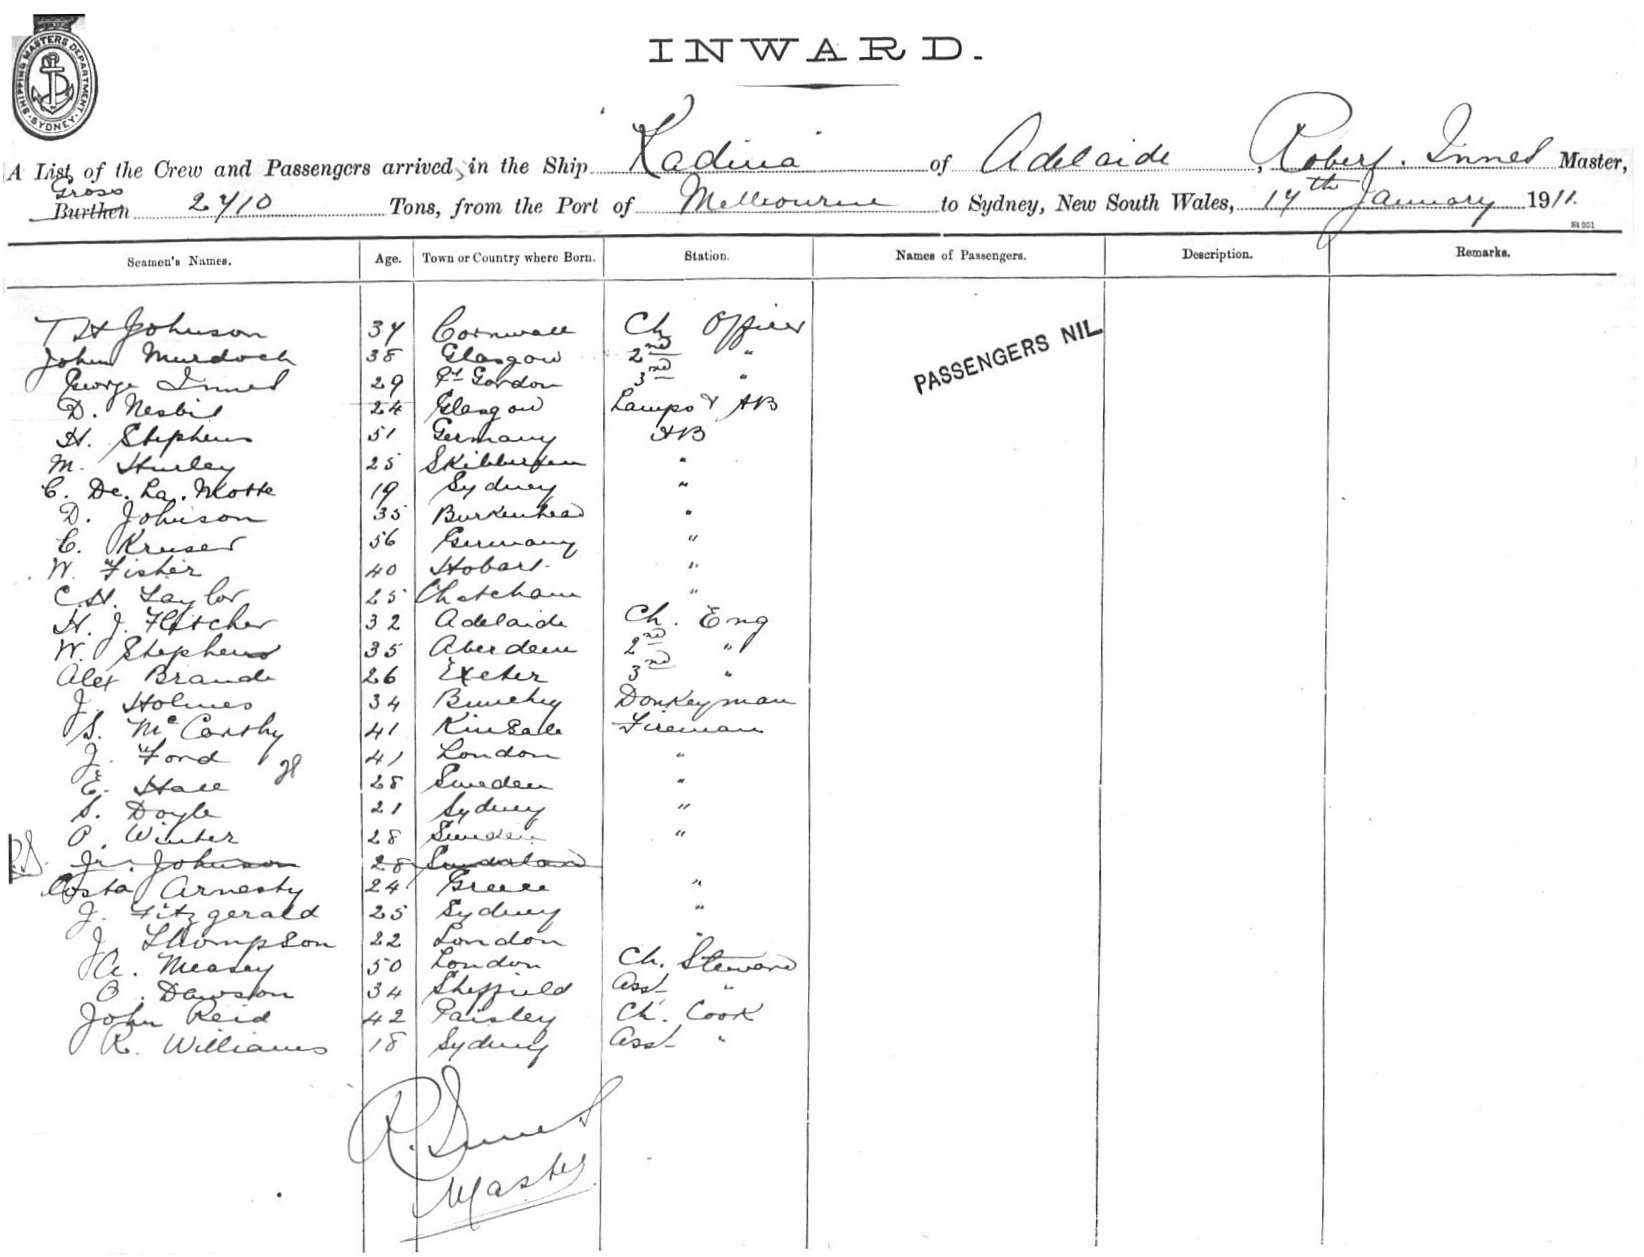 SHIPPING MASTERS DEPARTMENT
SYDNEY
INWARD.
A List of the Crew and Passengers arrived in the Ship Kadina of Adelaide, Robert Innes Master,
Gross
Burthen 2710 Tons, from the Port of Melbourne to Sydney, New South Wales, 17th January 1911.
St 951
Seamen's Names. Age. Town or Country where Born. Station. Names of Passengers. Description. Remarks.
T H Johnson 37 Cornwall Ch Officer
John Murdoch 38 Glasgow 2nd "
George Innes 29 Pt Gordon 3nd "
D. Nesbit 24 Glasgow Lamps & AB
H. Stephens 51 Germany AB
M. Hurley 25 Skibbereen "
C. De. La. Motte 19 Sydney "
D. Johnson 35 Burkenhead "
C. Kruser 56 Germany "
W. Fisher 40 Hobart "
C.H. Taylor 25 Chatcham "
H. J. Fletcher 32 Adelaide Ch. Eng
W. Stephens 35 Aberdeen 2nd "
Alex Brande 26 Exeter 3nd "
J. Holmes 34 Donkeyman
S. McCarthy 41 Kinsale Fireman
J. Ford 41 London "
E. Hall 28 Sweden "
S. Doyle 21 Sydney "
P. Winter 28 Sweden "
Jn. Johnson 28 Sundaland
Costa Arnesty 24 Greece "
J. Fitzgerald 25 Sydney "
J. Thompson 22 London "
A. Measey 50 London Ch. Steward
O. Dawson 34 Sheffield Asst "
John Reid 42 Paisley Ch. Cook
R. Williams 18 Sydney Asst "
PASSENGERS NIL
R. Innes
Master